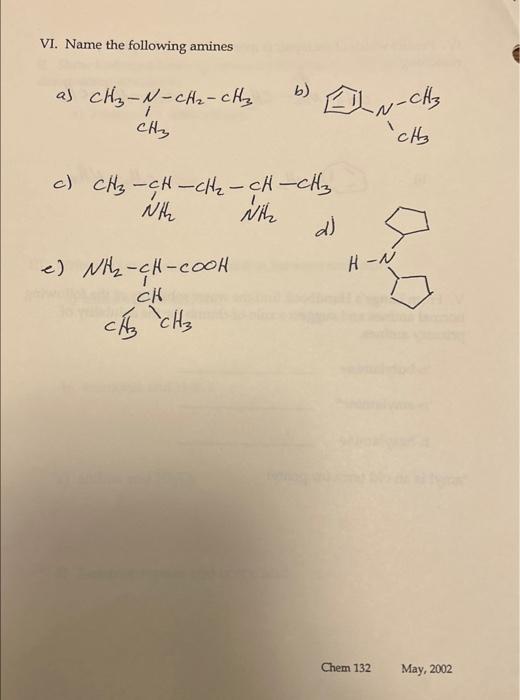 VI. Name the following amines
a) CH3-N-CH2-CH3
CH3
b)
N-CH3
CH3
c) CH3-CH-CH2-CH-CH3
NH2 NH2
d)
H-N
e) NH2-CH-COOH
CH
CH3 CH3
Chem 132 May, 2002